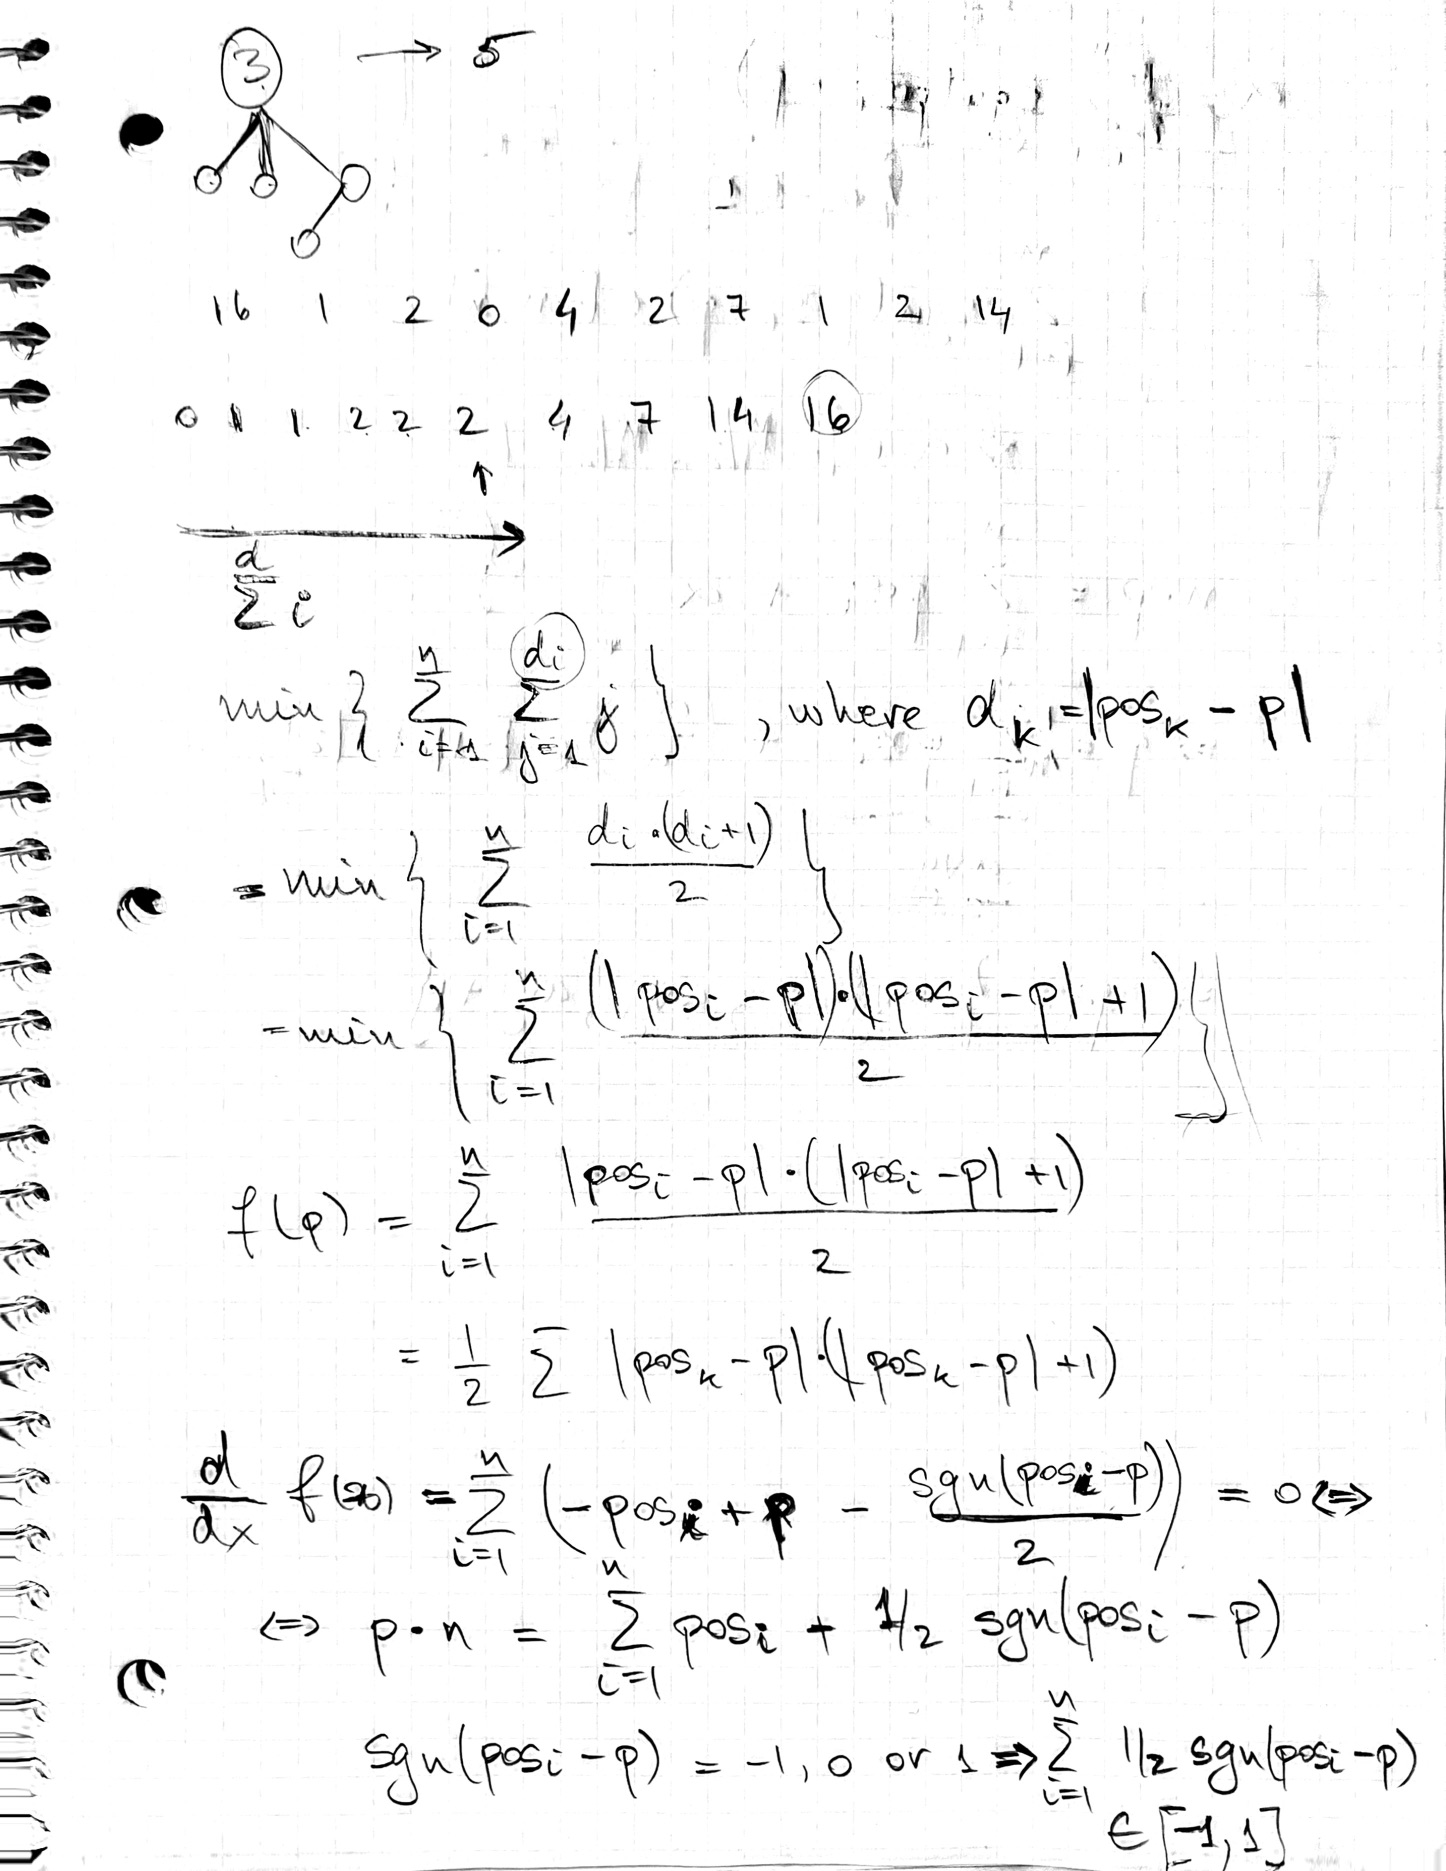 3 → 5
16 1 2 0 4 2 7 1 2 14
0 1 1 2 2 2 4 7 14 16
↑
d
Σ i
min { Σ_{i=1}^{n} Σ_{j=1}^{di} j } , where d_k = |pos_k - p|
= min { Σ_{i=1}^{n} di·(di+1) / 2 }
= min { Σ_{i=1}^{n} (|pos_i - p|)·(|pos_i - p| + 1) / 2 }
f(p) = Σ_{i=1}^{n} |pos_i - p| · (|pos_i - p| + 1) / 2
= 1/2 Σ |pos_k - p|·(|pos_k - p| + 1)
d/dx f(x) = Σ_{i=1}^{n} (-pos_i + p - sgn(pos_i - p) / 2) = 0 ⇔
⇔ p·n = Σ_{i=1}^{n} pos_i + 1/2 sgn(pos_i - p)
sgn(pos_i - p) = -1, 0 or 1 ⇒ Σ_{i=1}^{n} 1/2 sgn(pos_i - p)
∈ [-1, 1]